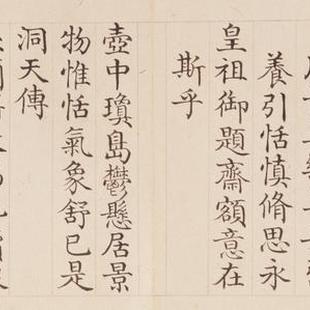 養引恬慎脩思永
皇祖御題齋額意在
斯乎
壺中瓊島鬱懸居景
物惟恬氣象舒已是
洞天傳